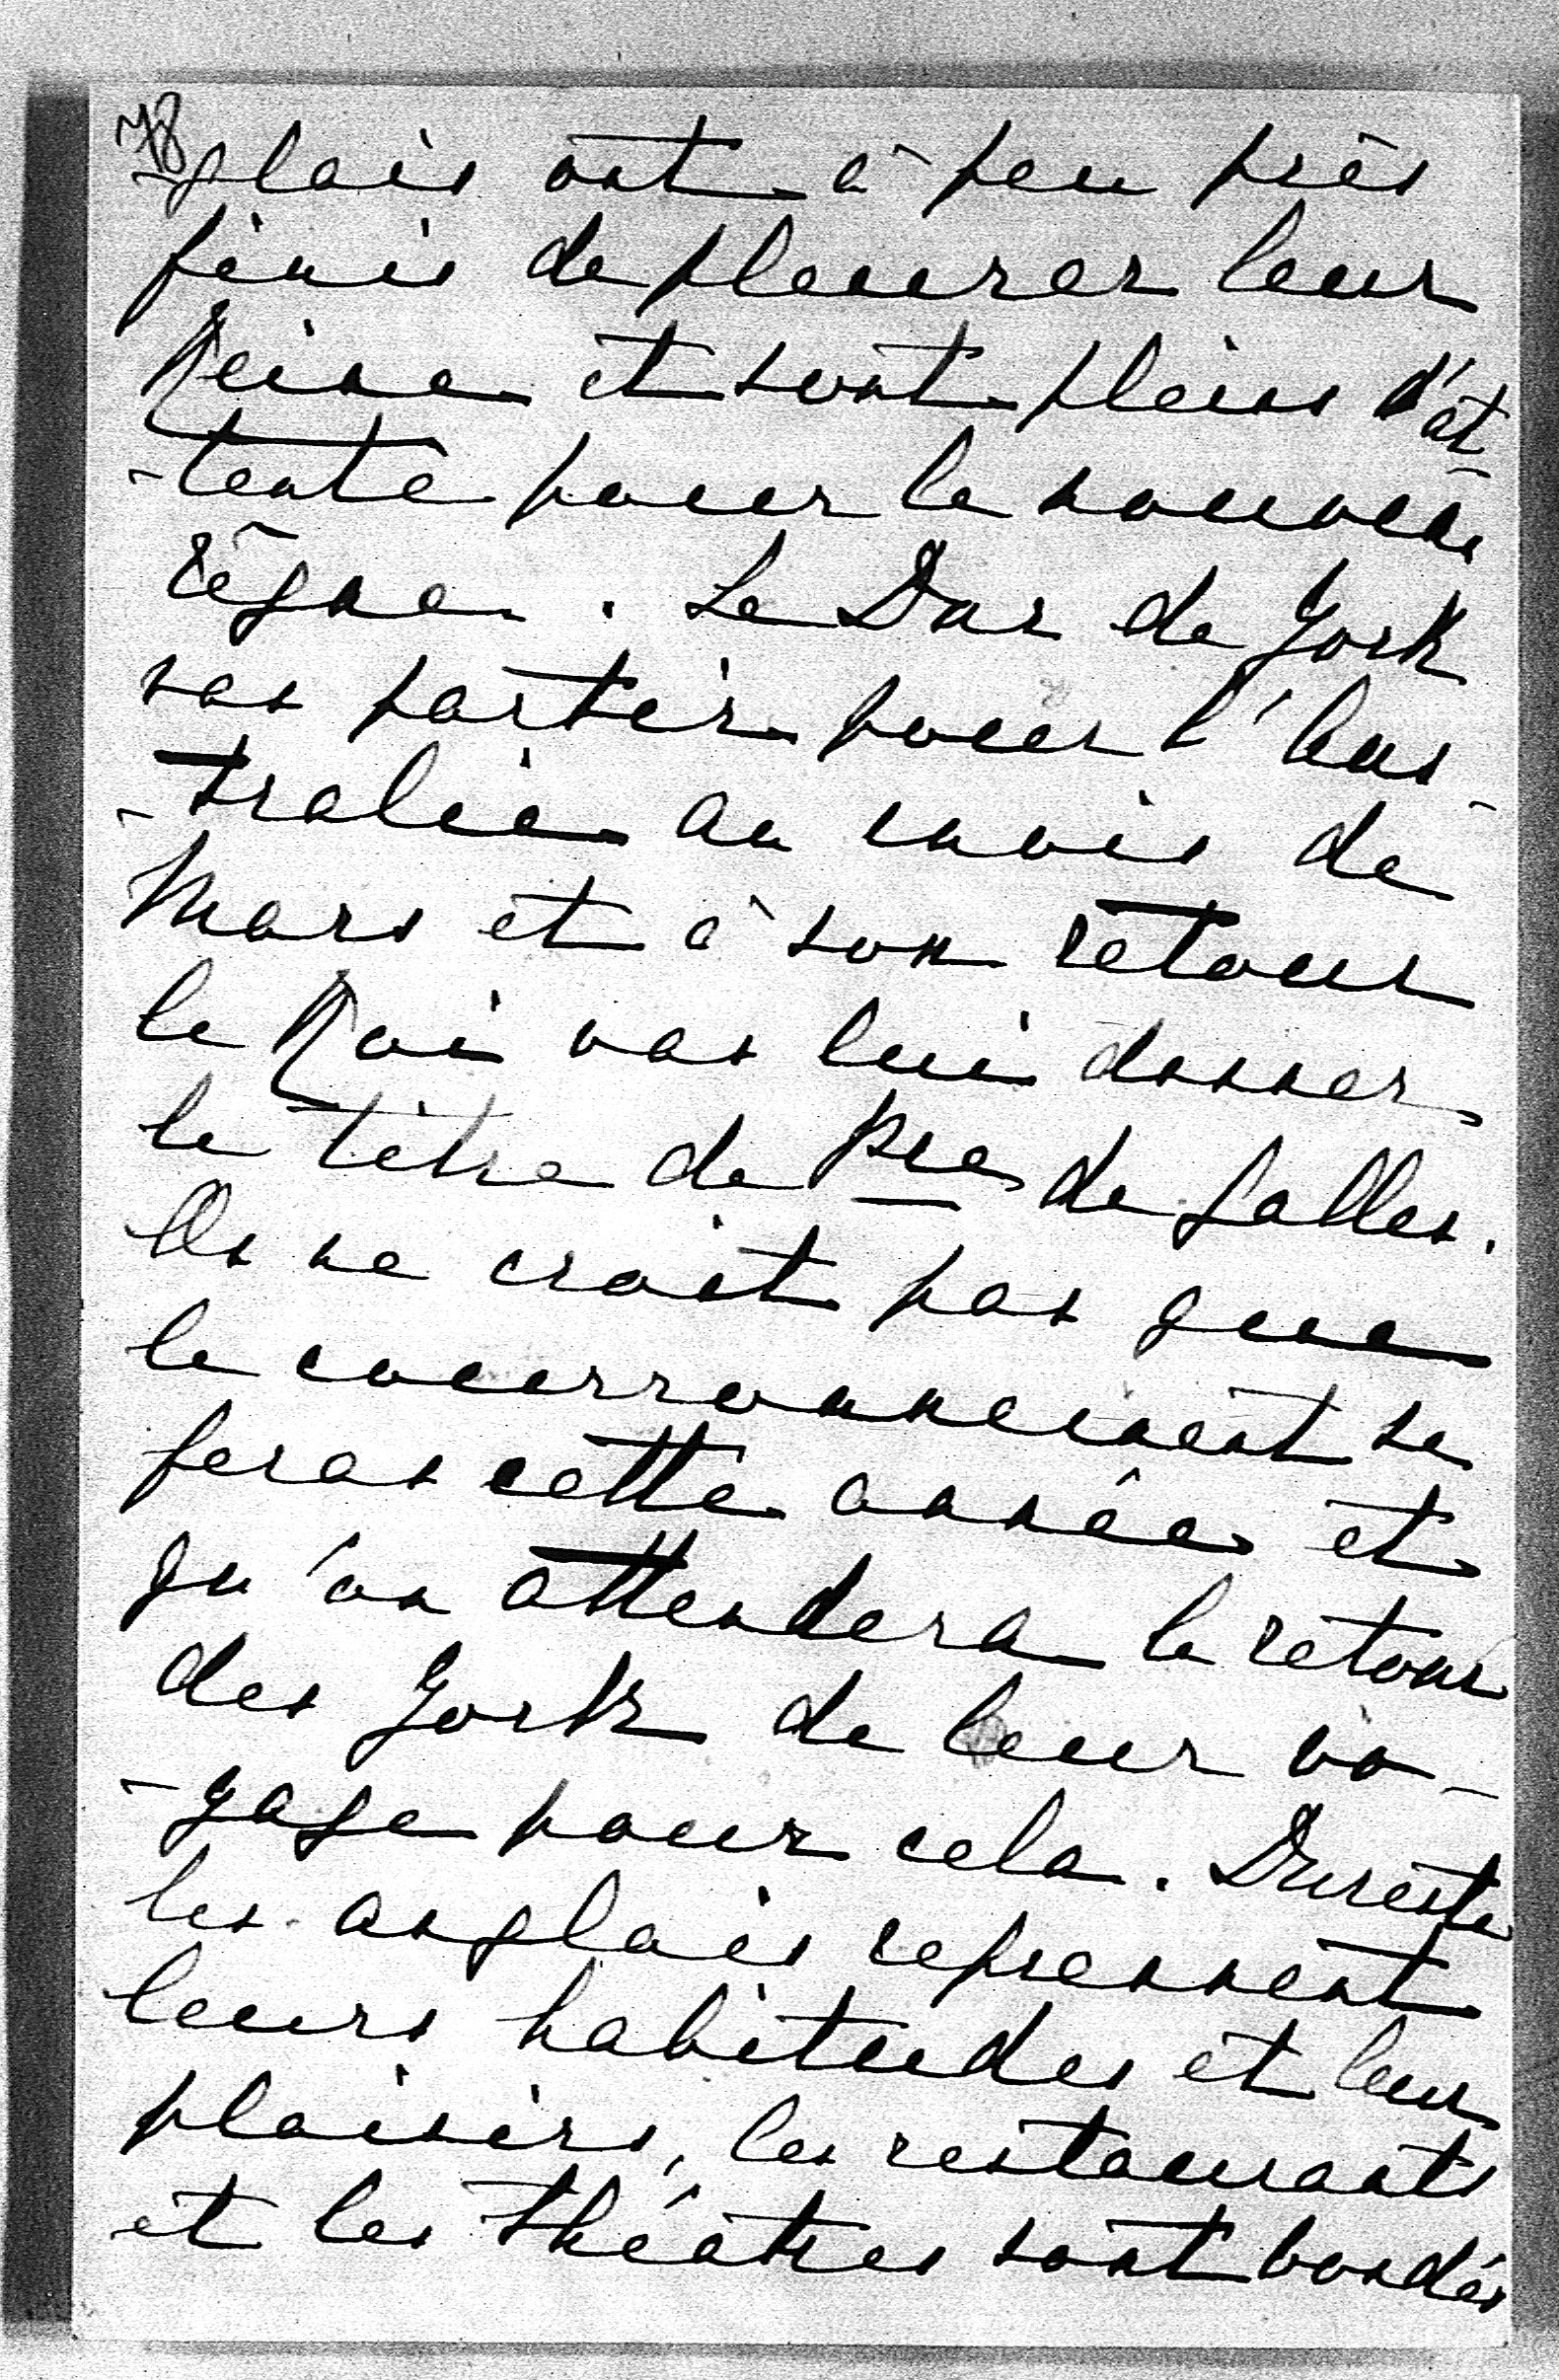 78
-glais ont à peu près
finis de pleurer leur
Reine et sont pleins d'at
-tente pour le nouveau
règne. Le Duc de York
vas partir pour l'Aus-
-tralie au mois de
Mars et à son retour
le Roi vas lui donner
le titre de Pce de Galles.
On ne croit pas que
le couronnement se
feras cette année et
qu'on attendera le retour
des York de leur vo-
-yage pour cela. Dureste
les anglais reprennent
leurs habitudes et leur
plaisirs, les restaurants
et les théâtres sont bondés